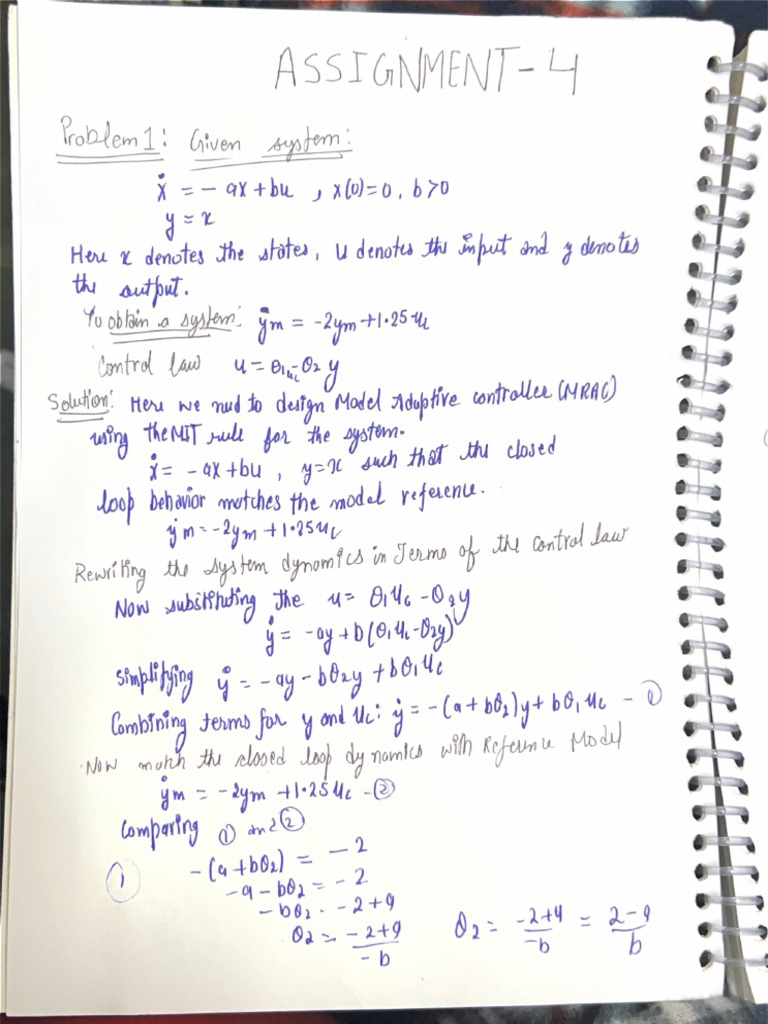 ASSIGNMENT-4
Problem 1: Given system:
ẋ = - ax + bu , x(0)=0, b>0
y = x
Here x denotes the states, u denotes the input and y denotes
the output.
To obtain a system: ẏm = -2ym+1.25uc
Control law u = θ1uc-θ2 y
Solution: Here we need to design Model Adaptive controller (MRAC)
using the MIT rule for the system.
ẋ = - ax + bu , y=x such that the closed
loop behavior matches the model reference.
ẏm = -2ym + 1.25uc
Rewriting the system dynamics in Terms of the control law
Now substituting the u = θ1uc - θ2y
ẏ = -ay + b(θ1uc-θ2y)
Simplifying ẏ = -ay - bθ2y + bθ1uc
Combining terms for y and uc: ẏ = -(a+bθ2)y + bθ1uc - ①
Now match the closed loop dynamics with Reference Model
ẏm = -2ym +1.25uc -②
Comparing ① and ②
① -(a+bθ2) = -2
-a - bθ2 = -2
-bθ2 = -2+a
θ2 = -2+a/-b θ2 = -2+a/-b = 2-a/b